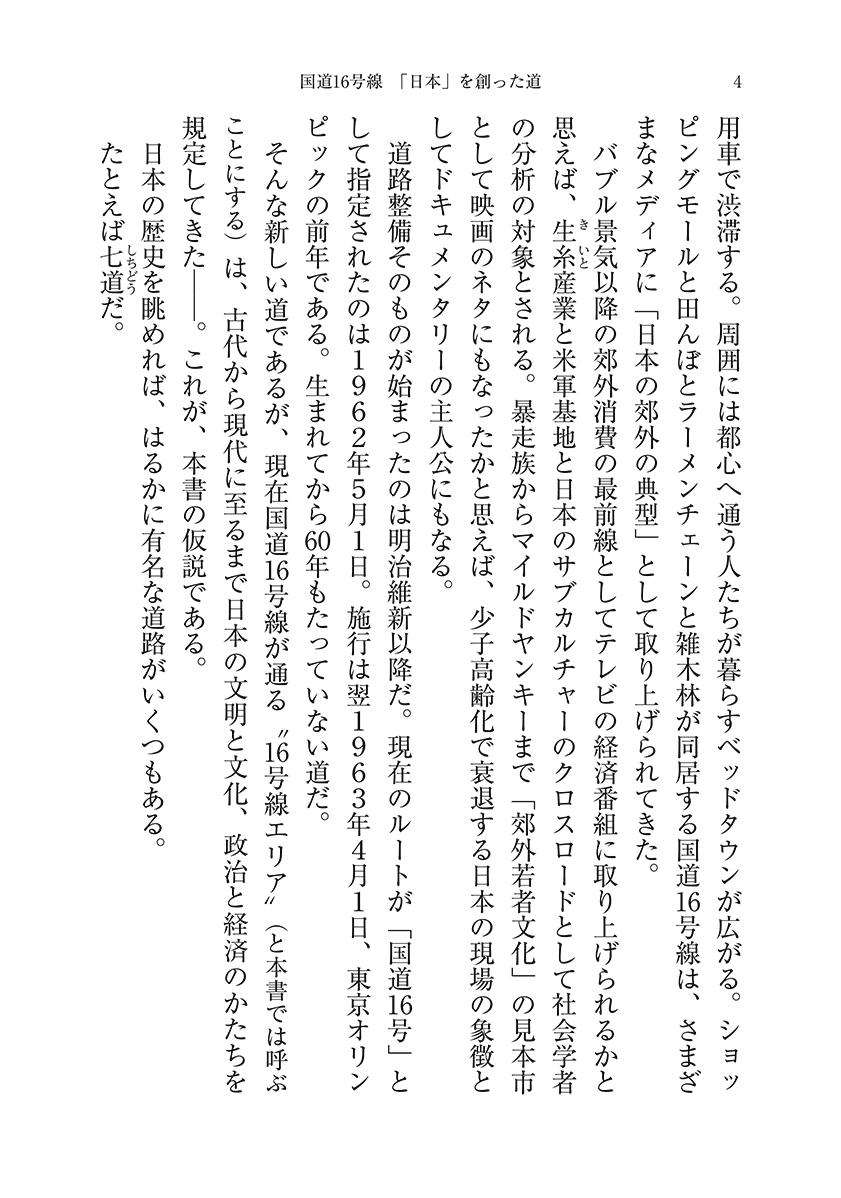 国道16号線　「日本」を創った道
4
用車で渋滞する。周囲には都心へ通う人たちが暮らすベッドタウンが広がる。ショッ
ピングモールと田んぼとラーメンチェーンと雑木林が同居する国道16号線は、さまざ
まなメディアに「日本の郊外の典型」として取り上げられてきた。
バブル景気以降の郊外消費の最前線としてテレビの経済番組に取り上げられるかと
思えば、生糸産業と米軍基地と日本のサブカルチャーのクロスロードとして社会学者
きいと
の分析の対象とされる。暴走族からマイルドヤンキーまで「郊外若者文化」の見本市
として映画のネタにもなったかと思えば、少子高齢化で衰退する日本の現場の象徴と
してドキュメンタリーの主人公にもなる。
道路整備そのものが始まったのは明治維新以降だ。現在のルートが「国道16号」と
して指定されたのは１９６２年５月１日。施行は翌１９６３年４月１日、東京オリン
ピックの前年である。生まれてから60年もたっていない道だ。
そんな新しい道であるが、現在国道16号線が通る〝16号線エリア〟（と本書では呼ぶ
ことにする）は、古代から現代に至るまで日本の文明と文化、政治と経済のかたちを
規定してきた――。これが、本書の仮説である。
日本の歴史を眺めれば、はるかに有名な道路がいくつもある。
たとえば七道だ。
しちどう